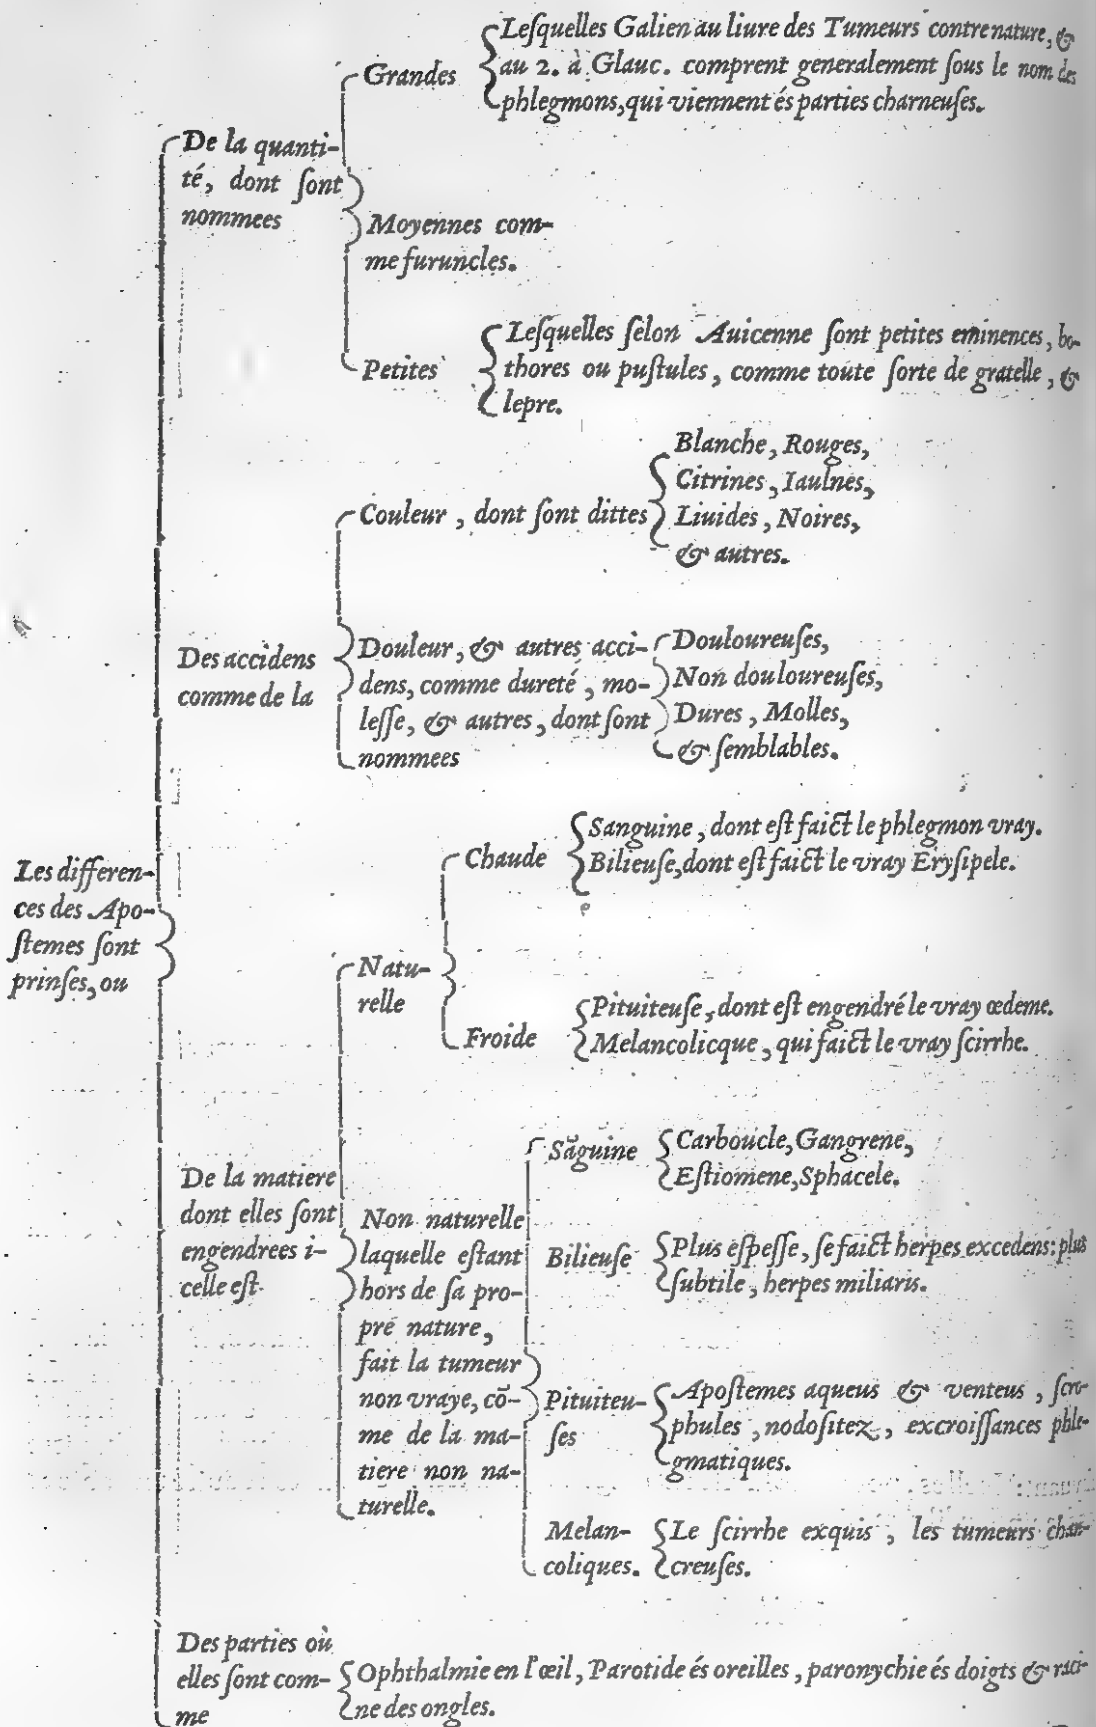 Leſquelles Galien au liure des Tumeurs contre nature, &
Grandes
au 2. à Glauc. comprent generalement ſous le nom des
phlegmons, qui viennent és parties charneuſes.
De la quanti-
té, dont ſont
nommees
Moyennes com-
me furuncles.
Petites
Leſquelles ſelon Auicenne ſont petites eminences, bo-
thores ou puſtules, comme toute ſorte de gratelle, &
lepre.
Couleur, dont ſont dittes
Blanche, Rouges,
Citrines, Iaulnes,
Liuides, Noires,
& autres.
Des accidens
comme de la
Douleur, & autres acci-
dens, comme dureté, mo-
leſſe, & autres, dont ſont
nommees
Douloureuſes,
Non douloureuſes,
Dures, Molles,
& ſemblables.
Les differen-
ces des Apo-
ſtemes ſont
prinſes, ou
De la matiere
dont elles ſont
engendrees i-
celle eſt
Natu-
relle
Chaude
Sanguine, dont eſt faict le phlegmon vray.
Bilieuſe, dont eſt faict le vray Eryſipele.
Froide
Pituiteuſe, dont eſt engendré le vray œdeme.
Melancolicque, qui faict le vray ſcirrhe.
Non naturelle
laquelle eſtant
hors de ſa pro-
pre nature,
fait la tumeur
non vraye, cõ-
me de la ma-
tiere non na-
turelle.
Sãguine
Carboucle, Gangrene,
Eſtiomene, Sphacele.
Bilieuſe
Plus eſpeſſe, ſe faict herpes excedens: plus
ſubtile, herpes miliaris.
Pituiteu-
ſes
Apoſtemes aqueus & venteus, ſcro-
phules, nodoſitez, excroiſſances phle-
gmatiques.
Melan-
coliques.
Le ſcirrhe exquis, les tumeurs chan-
creuſes.
Des parties où
elles ſont com-
me
Ophthalmie en l'œil, Parotide és oreilles, paronychie és doigts & raci-
ne des ongles.